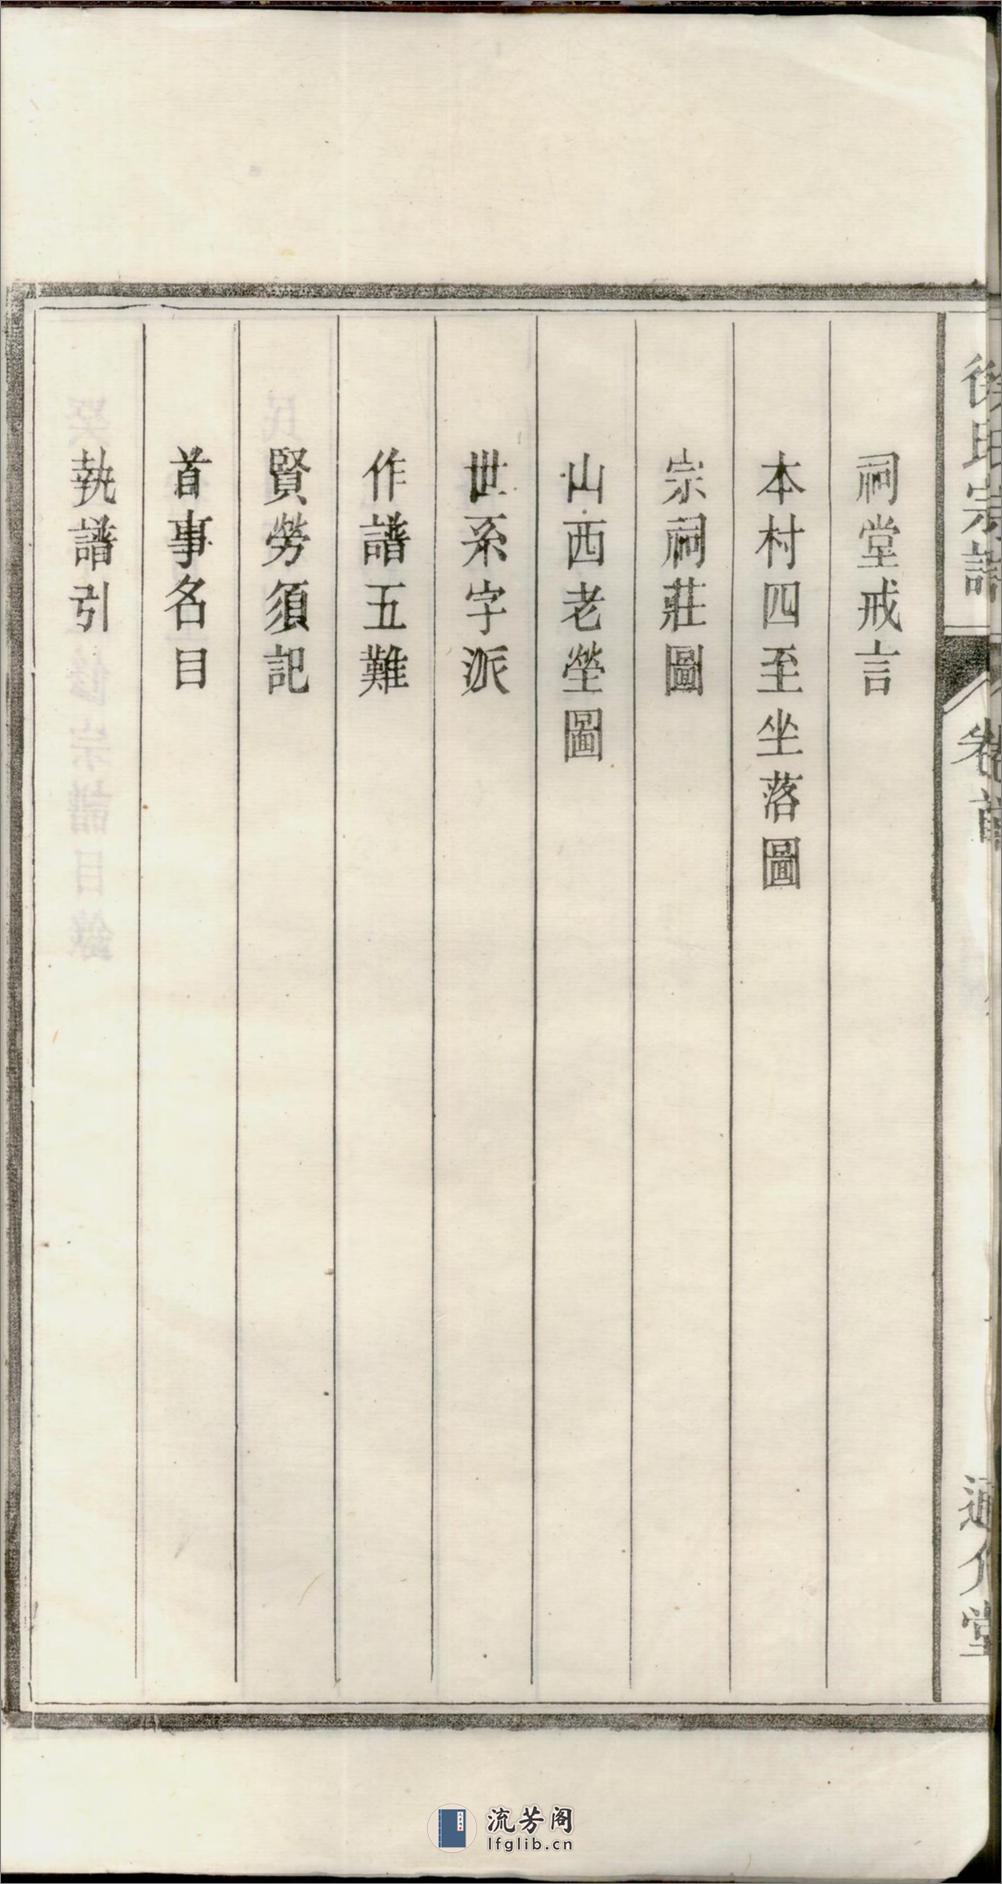 氏宗譜
卷首
堂
祠堂戒言
本村四至坐落圖
宗祠莊圖
山西老塋圖
世系字派
作譜五難
賢勞須記
首事名目
執譜引
流芳阁
lfglib.cn